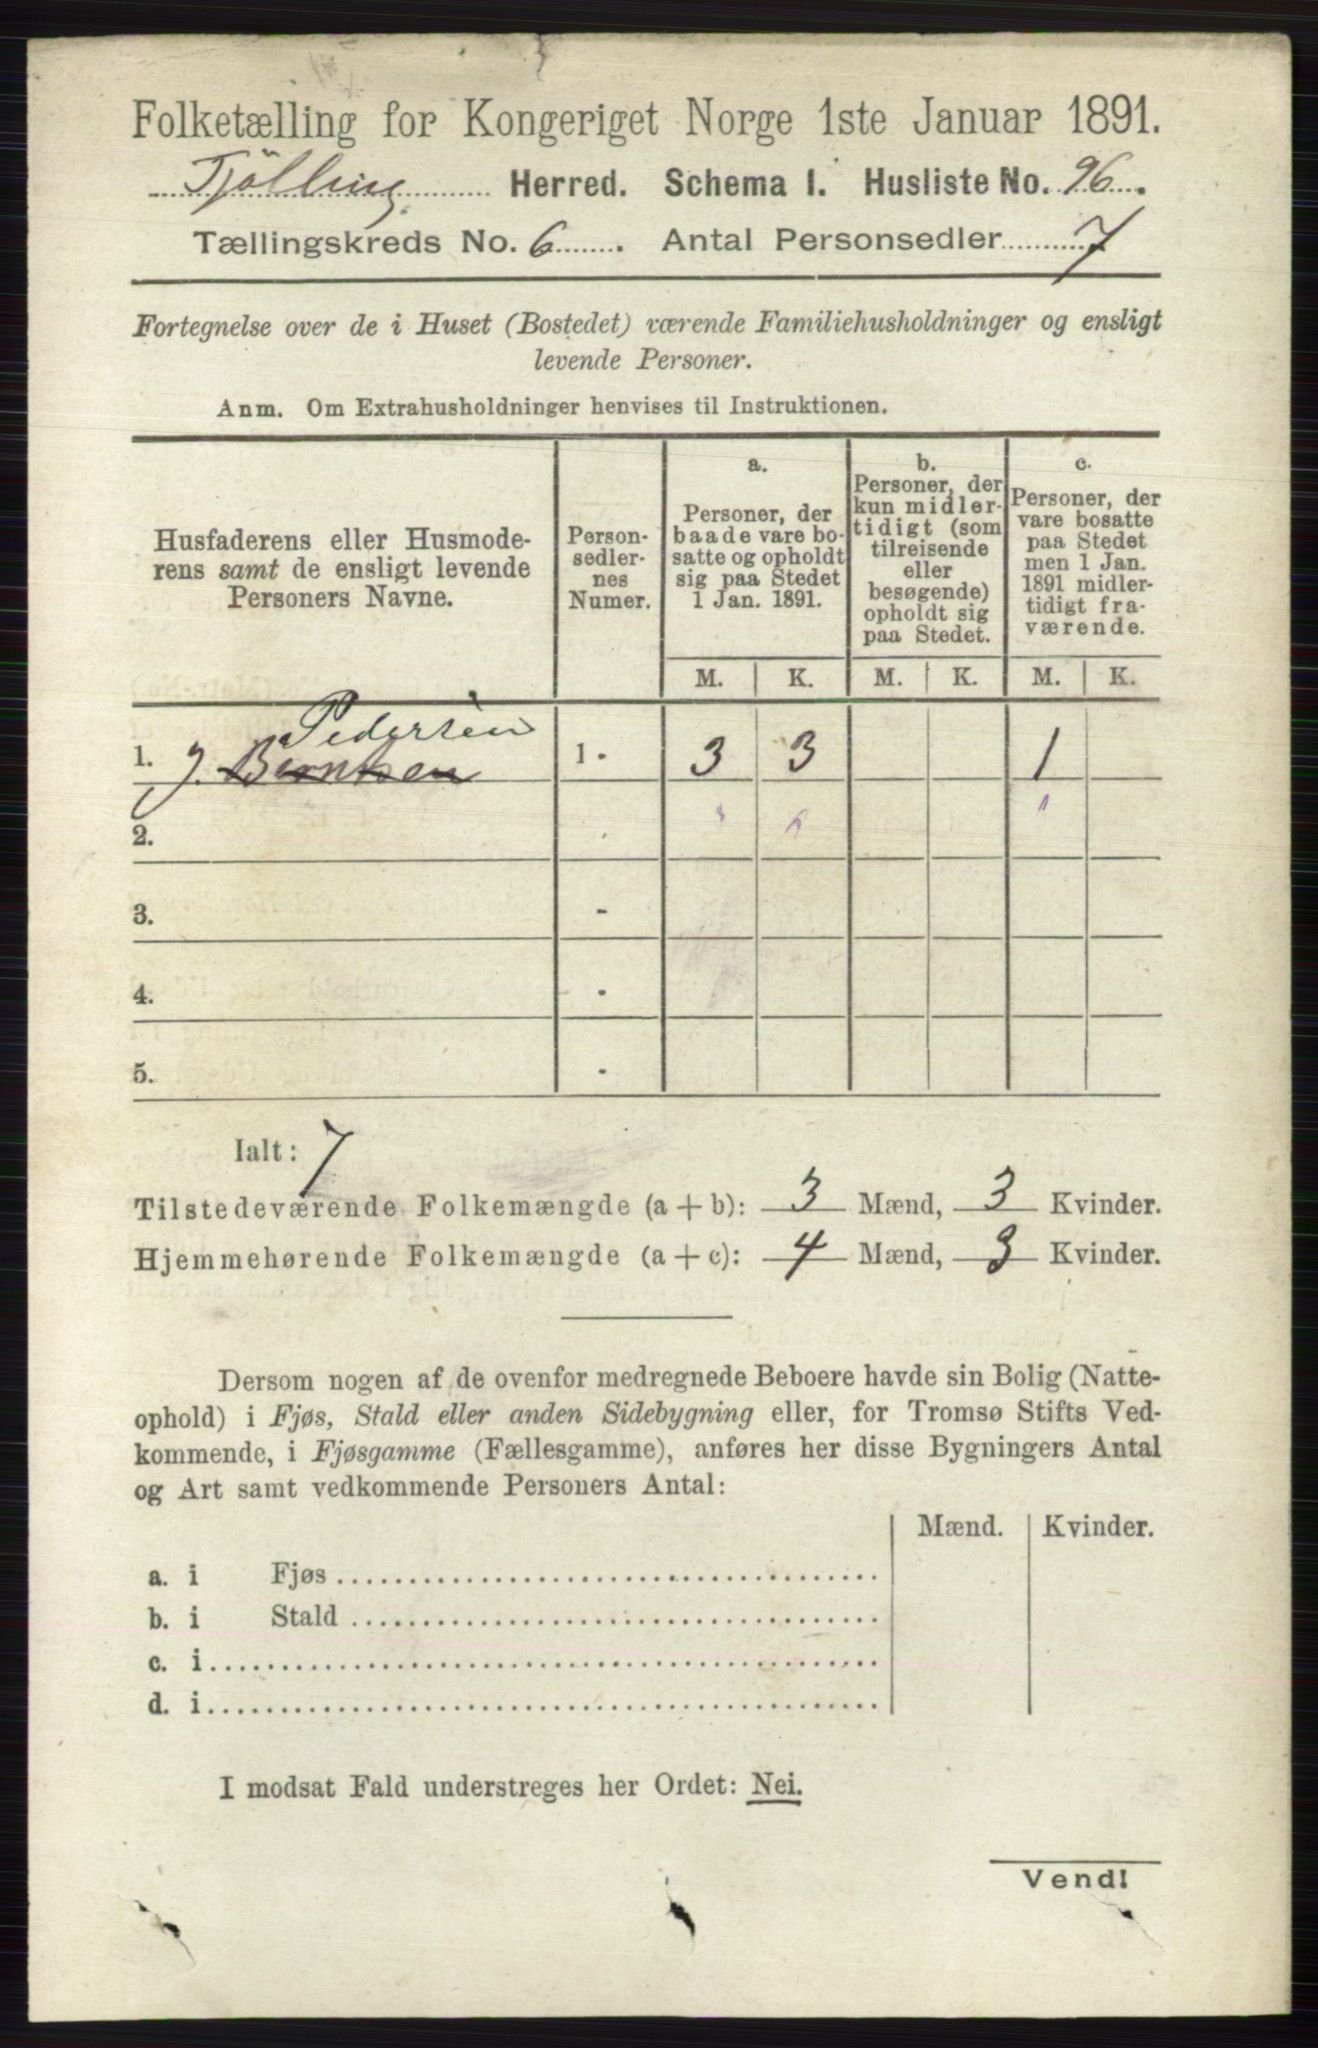 Folketælling for Kongeriget Norge 1ste Januar 1891.
Tjølling Herred. Schema I. Husliste No. 96.
Tællingskreds No. 6. Antal Personsedler 7
Fortegnelse over de i Huset (Bostedet) værende Familiehusholdninger og ensligt
levende Personer.
Anm. Om Extrahusholdninger henvises til Instruktionen.
Husfaderens eller Husmode-
rens samt de ensligt levende
Personers Navne.
Person-
sedler-
nes
Numer.
a.
Personer, der
baade vare bo-
satte og opholdt
sig paa Stedet
1 Jan. 1891.
b.
Personer, der
kun midler-
tidigt (som
tilreisende
eller
besøgende)
opholdt sig
paa Stedet.
c.
Personer, der
vare bosatte
paa Stedet
men 1 Jan.
1891 midler-
tidigt fra-
værende.
M. K. M. K. M. K.
Pedersen
1. J. 1 - 3 3 1
2.
3. -
4. -
5. -
Ialt: 7
Tilstedeværende Folkemængde (a + b): 3 Mænd, 3 Kvinder.
Hjemmehørende Folkemængde (a + c): 4 Mænd, 3 Kvinder.
Dersom nogen af de ovenfor medregnede Beboere havde sin Bolig (Natte-
ophold) i Fjøs, Stald eller anden Sidebygning eller, for Tromsø Stifts Ved-
kommende, i Fjøsgamme (Fællesgamme), anføres her disse Bygningers Antal
og Art samt vedkommende Personers Antal:
Mænd. Kvinder.
a. i Fjøs
b. i Stald
c. i
d. i
I modsat Fald understreges her Ordet: Nei.
Vend!